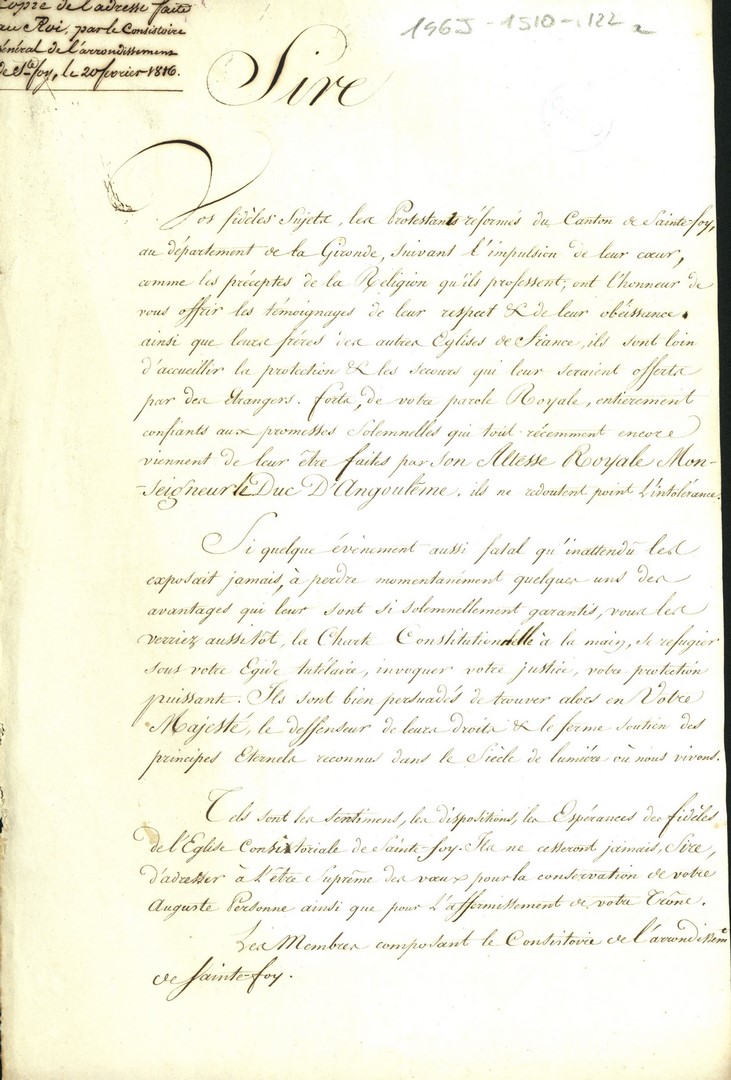 Copie de l'adresse faite
au Roi, par le Consistoire
Général de l'arrondissement
de Ste foy, le 20 fevrier 1816.
196J-1510-122
Sire
Vos fidèles Sujets, les Protestants réformés du Canton de Sainte-foy,
au département de la Gironde, suivant l'impulsion de leur cœur,
comme les préceptes de la Religion qu'ils professent, ont l'honneur de
vous offrir les témoignages de leur respect & de leur obéissance.
ainsi que leurs frères des autres Eglises de France, ils sont loin
d'accueillir la protection & les secours qui leur seraient offerts
par des étrangers. forts, de votre parole Royale, entierement
confiants aux promesses Solemnelles qui tout récemment encore
viennent de leur être faites par Son Altesse Royale Mon-
-Seigneur le Duc D'Angoulème. ils ne redoutent point L'intolérance.
Si quelque évènement aussi fatal qu'inattendu les
exposait jamais, à perdre momentanément quelques uns des
avantages qui leur sont si solemnellement garantis, vous les
verriez aussitôt, la Charte Constitutionnelle à la main, se refugier
sous votre Egide tutélaire, invoquer votre justice, votre protection
puissante. Ils sont bien persuadés de trouver alors en Votre
Majesté, le deffenseur de leurs droits & le ferme soutien des
principes Eternels reconnus dans le Siècle de lumière où nous vivons.
Tels sont les sentimens, les dispositions, les Espérances des fidèles
de l'Eglise Consistoriale de Sainte-foy. Ils ne cesseront jamais, Sire,
d'adresser à L'être Suprème des vœux pour la conservation de votre
Auguste Personne ainsi que pour L'affermissement de votre Trône.
Les Membres composant le Consistoire de l'arrondissemt
de Sainte-foy.